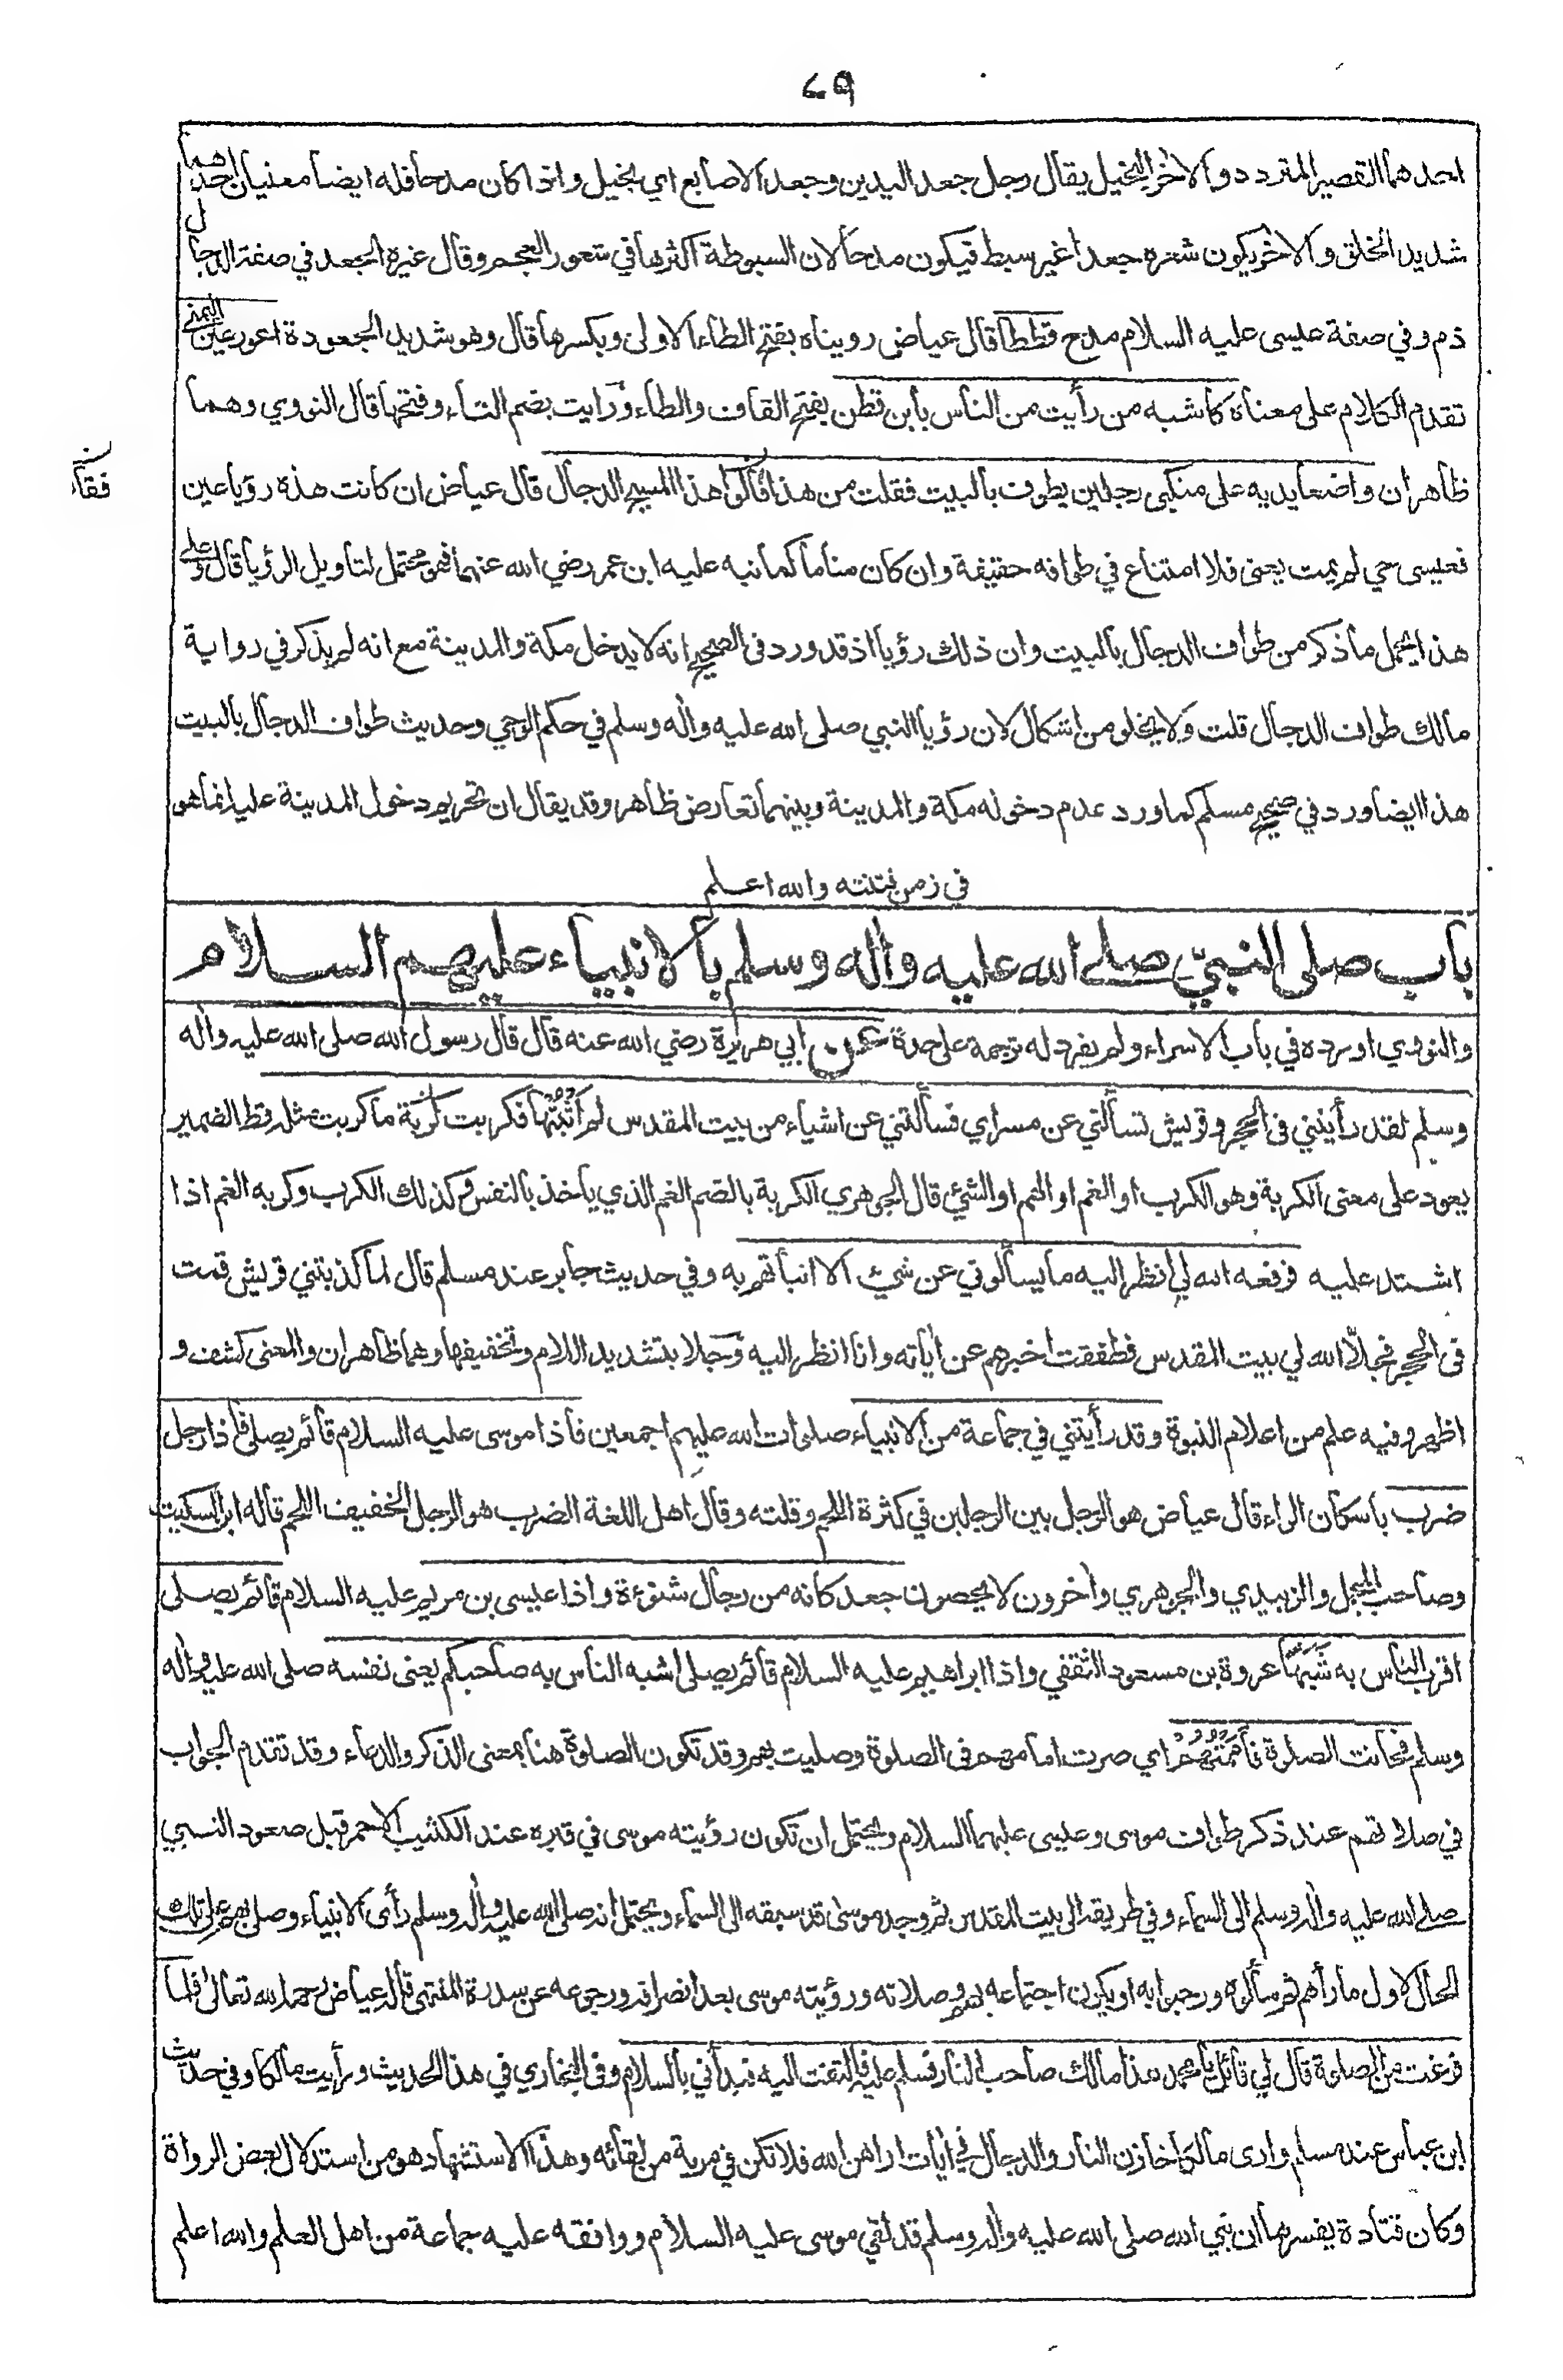 ٦٩
احدهما القصير المتردد والاخر البخيل يقال رجل جعد اليدين وجعد الاصابع اي بخيل واذا كان مدحا فله ايضا معنيان احدهما
شديد الخلق والاخر يكون شعره جعدا غير سبط فيكون مدحا لان السبوطة اكثرها في شعور العجم وقال غيره الجعد في صفة الدجال
ذم وفي صفة عيسى عليه السلام مدح قططا قال عياض رويناه بفتح الطاء الاولى وبكسرها قال وهو شديد الجعودة اعور عين اليمنى
تقدم الكلام على معناه كاشبه من رأيت من الناس بابن قطن بفتح القاف والطاء ورايت بضم التاء وفتحها قال النووي وهما
ظاهران واضعا يديه على منكبي رجلين يطوف بالبيت فقلت من هذا قالوا هذا المسيح الدجال قال عياض ان كانت هذه رؤيا عين
فقالوا
فعيسى حي لم يمت يعنى فلا امتناع في طوافه حقيقة وان كان مناما كما نبه عليه ابن عمر رضي الله عنهما فهو محتمل لتاويل الرؤيا قال وعلى
هذا يحمل ما ذكر من طواف الدجال بالبيت وان ذلك رؤيا اذ قد ورد فى الصحيح انه لا يدخل مكة والمدينة مع انه لم يذكر في رواية
مالك طواف الدجال قلت ولا يخلو من اشكال لان رؤيا النبي صلى الله عليه واله وسلم في حكم الوحي وحديث طواف الدجال بالبيت
هذا ايضا ورد في صحيح مسلم كما ورد عدم دخوله مكة والمدينة وبينهما تعارض ظاهر وقد يقال ان تحريم دخول المدينة عليه انما هو
في زمن فتنته والله اعلم
باب صلى النبيّ صلى الله عليه واله وسلم بالانبياء عليهم السلام
والنووي اورده في باب الاسراء ولم يفرد له ترجمة على حدة عن ابي هريرة رضي الله عنه قال قال رسول الله صلى الله عليه واله
وسلم لقد رأيتني فى الحجر وقريش تسألني عن مسراي فسألتني عن اشياء من بيت المقدس لم أثبتها فكربت كربة ما كربت مثله قط الضمير
يعود على معنى الكربة وهو الكرب او الغم او الهم او الشئ قال الجوهري الكربة بالضم الغم الذي ياخذ بالنفس وكذلك الكرب وكربه الغم اذا
اشتد عليه فرفعه الله لي انظر اليه ما يسألوني عن شئ الا انبأتهم به وفي حديث جابر عند مسلم قال لما كذبتني قريش قمت
فى الحجر فجلّا الله لي بيت المقدس فطفقت اخبرهم عن اياته وانا انظر اليه وجلا بتشديد اللام وتخفيفها وهما ظاهران والمعنى كشف و
اظهر وفيه علم من اعلام النبوة وقد رأيتني في جماعة من الانبياء صلوات الله عليهم اجمعين فاذا موسى عليه السلام قائم يصلي فاذا رجل
ضرب باسكان الراء قال عياض هو الرجل بين الرجلين في كثرة اللحم وقلته وقال اهل اللغة الضرب هو الرجل الخفيف اللحم قاله ابن السكيت
وصاحب المجمل والزبيدي والجوهري واخرون لا يحصون جعد كانه من رجال شنوءة واذا عيسى بن مريم عليه السلام قائم يصلى
اقرب الناس به شبها عروة بن مسعود الثقفي واذا ابراهيم عليه السلام قائم يصلى اشبه الناس به صاحبكم يعنى نفسه صلى الله عليه واله
وسلم فحانت الصلوة فأممتهم اي صرت امامهم فى الصلوة وصليت بهم وقد تكون الصلوة هنا بمعنى الذكر والدعاء وقد تقدم الجواب
في صلاتهم عند ذكر طواف موسى وعيسى عليهما السلام ويحتمل ان تكون رؤيته موسى في قبره عند الكثيب الاحمر قبل صعود النبي
صلى الله عليه واله وسلم الى السماء وفي طريقه الى بيت المقدس ثم وجد موسى قد سبقه الى السماء ويحتمل انه صلى الله عليه واله وسلم رأى الانبياء وصلى بهم على تلك
الحال لاول ما رأهم ثم سألوه ورحبوا به او يكون اجتماعه بهم وصلاته ورؤيته موسى بعد انصرافه ورجوعه عن سدرة المنتهى قاله عياض رحمه الله تعالى فلما
فرغت من الصلوة قال لي قائل يا محمد هذا مالك صاحب النار فسلم عليه فالتفت اليه فبدأني بالسلام وفى البخاري في هذا الحديث ورأيت مالكا وفي حديث
ابن عباس عند مسلم وارى مالكا خازن النار والدجال في ايات اراهن الله فلا تكن في مرية من لقائه وهذا الاستشهاد هو من استدلال بعض الرواة
وكان قتادة يفسرها ان نبي الله صلى الله عليه واله وسلم قد لقي موسى عليه السلام ووافقه عليه جماعة من اهل العلم والله اعلم